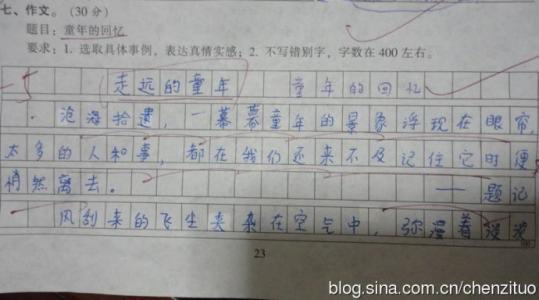 七、作文。(30分)
题目：童年的回忆
要求：1. 选取具体事例，表达真情实感；2. 不写错别字，字数在400左右。
-5
走远的童年 童年的回忆
沧海拾遗，一幕幕童年的景象浮现在眼帘，
太多的人和事，都在我们还来不及记住它时便
悄然离去。 ——题记
风刮来的飞尘夹杂在空气中，弥漫着
23
blog.sina.com.cn/chenzituo